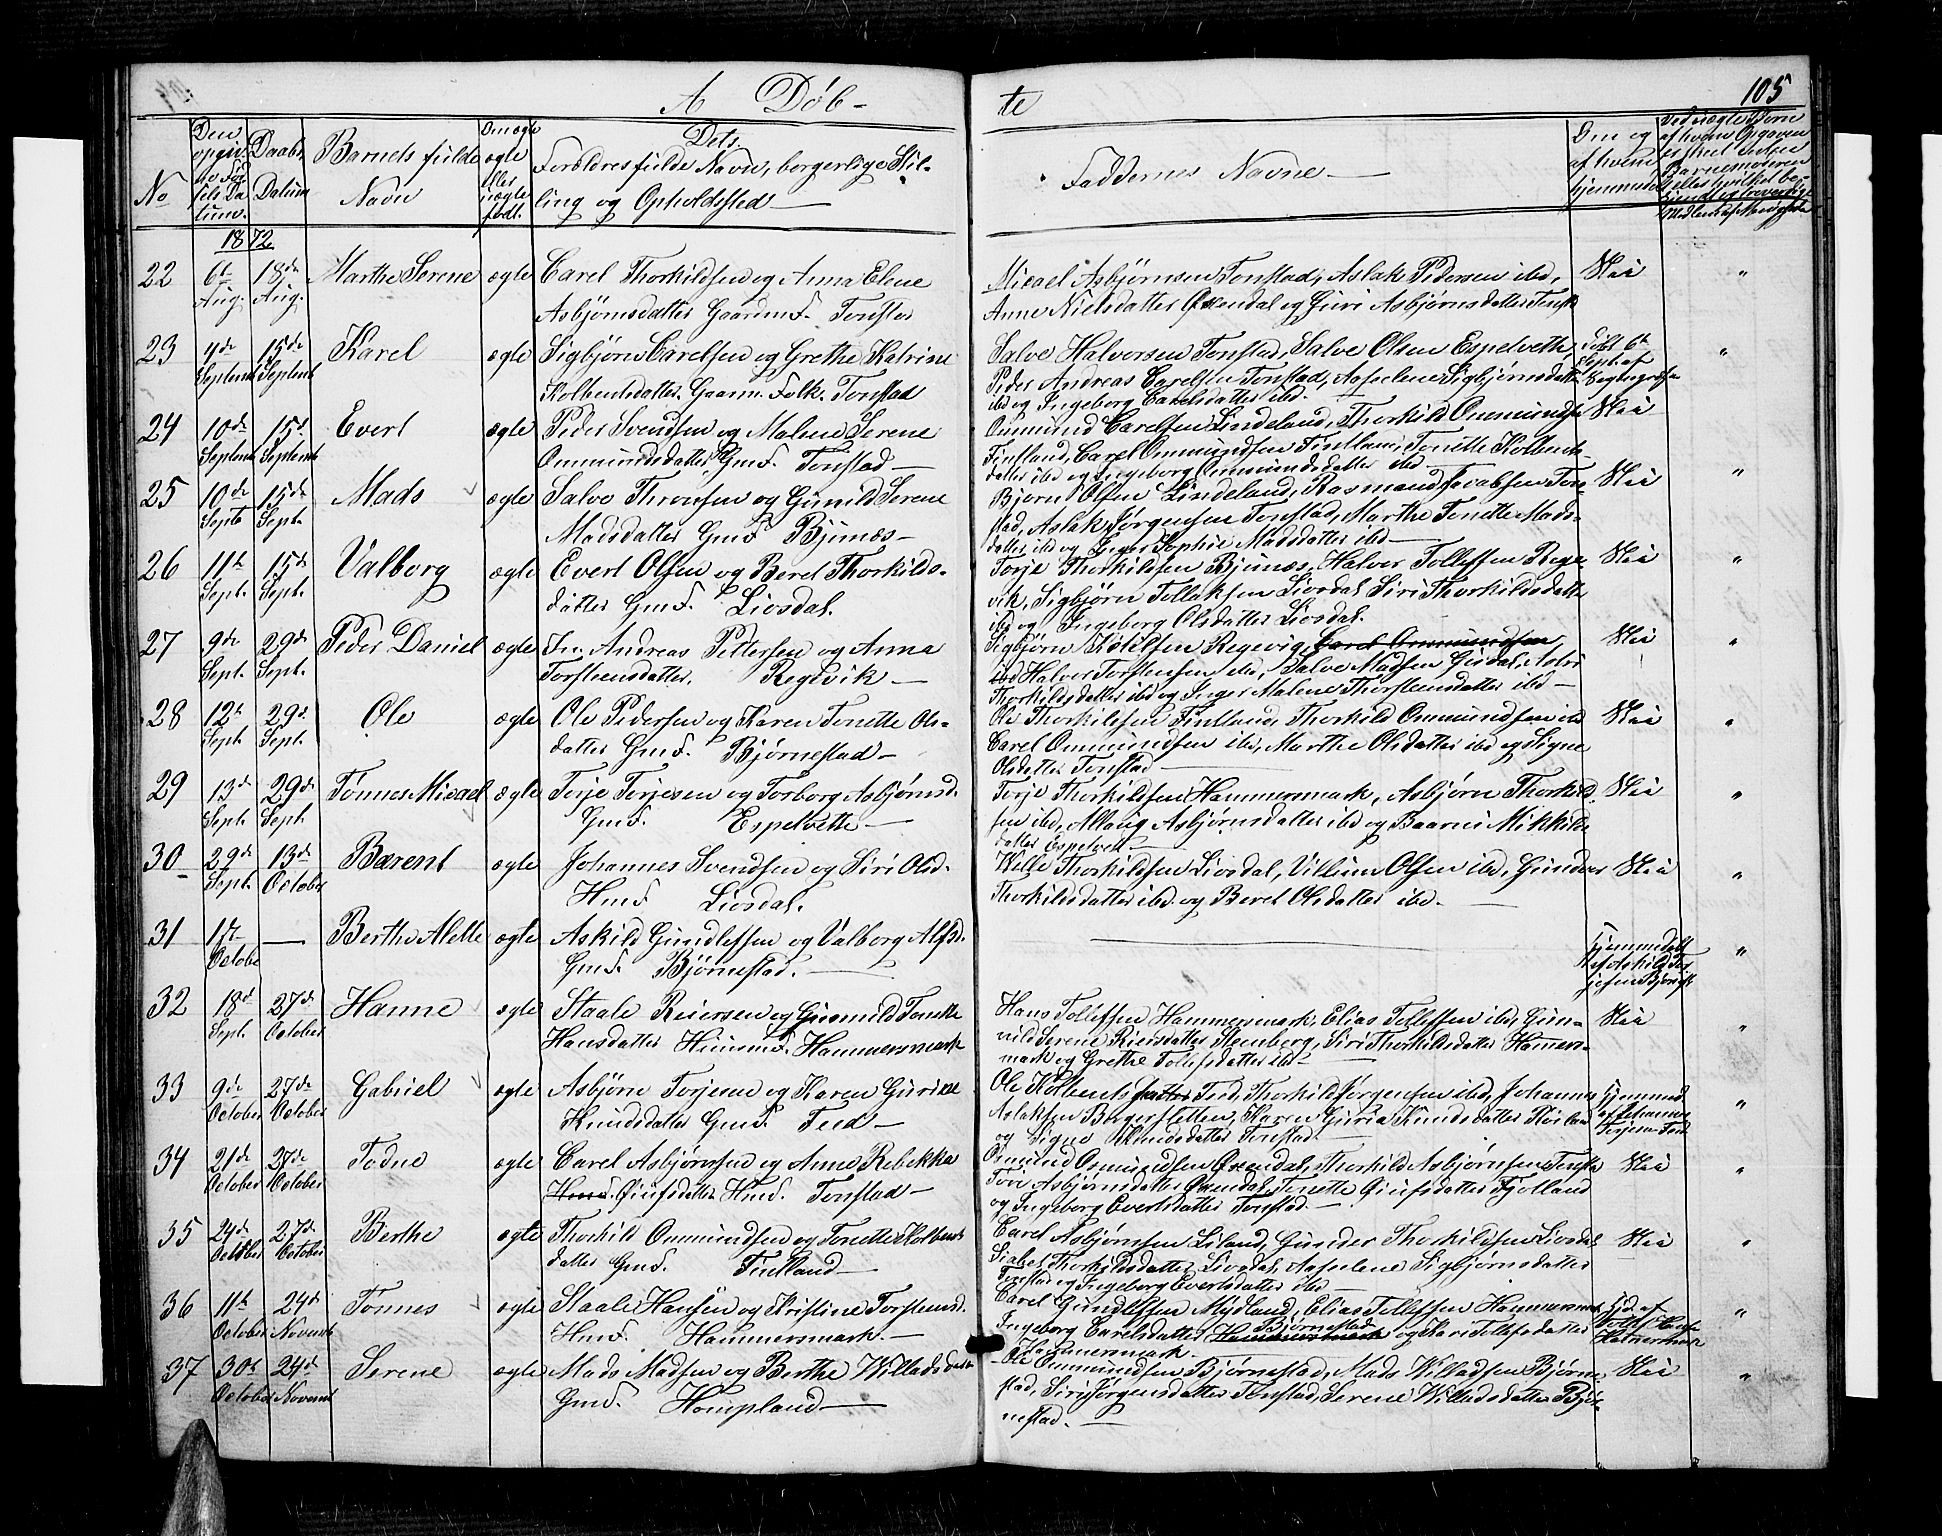 105
A Døb-
te
No
Den opgiv. Fødsels Datum.
Daabs Datum
Barnets fulde Navn
Om ægte eller uægte født.
Dets Forældres fulde Navn, borgerlige Stilling og Opholdssted
Faddernes Navne
Om og af hvem hjemmedøbt
1872
22 6te Aug. 18de Aug. Marthe Serene ægte Carel Thorkildsen og Anna Elene
Asbjørnsdatter Gaardmf. Tonstad
Micael Asbjørnsen Tonstad, Aslak Pedersen ibd, Nei "
Anne Nielsdatter Øxendal og Guri Asbjørnsdatter Tonst
23 4de Septemb 15de Septemb Karel ægte Sigbjørn Carelsen og Grethe Katrine
Kolbensdatter Gaarm. Folk. Tonstad
Salve Halvorsen Tonstad, Salve Olsen Espelvethe, "
Peder Andreas Carelsen Tonstad, Asselene Sigbjørnsdatt.
ibd og Ingeborg Carelsdatter ibd.
24 10de Septemb 15d Septemb Evert ægte Peder Svendsen og Malene Serene
Ommundsdatter Gmf. Tonstad
Ommund Carelsen Lindeland, Thorkild Ommundse Nei
Fintland, Carel Ommundsen Fintland, Tonette Kolbens-
datter ibd og Ingeborg Ommundsdatter ibd
25 10de Septb 15de Sept. Mads ægte Salve Thronsen og Gunild Serene
Madsdatter Gmf Bjunæs
Bjørn Olsen Lindeland, Rasmus Jacobsen Ton- Nei "
stad, Aslak Jørgensen Tonstad, Marthe Tonette Mads-
datter ibd og Inger Sophie Madsdatter ibd
26 11te Sept. 15de Sept. Valborg ægte Evert Olsen og Beret Thorkilds-
datter Gmf. Liosdal.
Torje Thorkildsen Bjunæs, Halvor Tollefsen Rege Nei "
vik, Sigbjørn Tollaksen Liosdal, Siri Thorkildsdatte
ibd og Ingeborg Olsdatter Liosdal.
27 9de Sept. 29de Sept. Peder Daniel ægte In. Andreas Pettersen og Anna
Torsteensdatter. Regevik
Sigbjørn Ketilsen Regevig, Carel Ommundsen Nei "
ibd Halvor Torstensen ibd, Salve Madsen Girdal, Astri
Thorkildsdatter ibd og Inger Malene Thorsteensdatter ibd
28 12te Sept. 29d. Sept. Ole ægte Ole Pedersen og Karen Tonette Ols-
datter Gmf. Bjørnestad
Ole Thorkildsen Fintland, Thorkild Ommundsen ibd Nei "
Carel Ommundsen ibd, Marthe Olsdatter ibd og Signe
Olsdatter Tonstad
29 13de Sept. 29de Sept. Tønnes Micael ægte Torje Terjesen og Torborg Asbjørnsd.
Gmf. Espelvette
Torje Thorkildsen Hammersmark, Asbjørn Thorkild Nei "
sen ibd, Allaug Asbjørnsdatter ibd og Baarni Mikkels
datter Espelvet
30 29de Sept. 13de October Berent ægte Johannes Svendsen og Siri Olsd.
Hmf Liosdal.
Welle Thorkildsen Liosdal, Villum Olsen ibd, Gunder Nei "
Thorkildsdatter ibd og Beret Olsdatter ibd.
31 1te October — Berthe Alette ægte Askild Gundlefsen og Valborg Alfsd.
Gmf. Bjørnestad.
Hjemmedøbt af Askild Terjesen Bjørnst "
32 18d Sept. 27de October Hanne ægte Staale Reiersen og Gunnild Tonette
Hansdatter Huusmf. Hammersmark
Hans Tollefsen Hammersmark, Elias Tollefsen ibd, Gun- Nei "
nild Serene Reiersdatter Stenberg, Siri Thorkildsdatter Hammers-
mark og Grethe Tollefsdatter ibd
33 9de October 27de October Gabriel ægte Asbjørn Torjesen og Karen Gurine
Knudsdatter Gmf. Tied
Ole Kolbens Tied, Thorkild Jørgensen ibd, Johannes Hjemmed. af Johannes Terjesen "
Aslaksen Bogerstetten, Karen Guria Knudsdatter
og Signe Knudsdatter Tonstad.
34 21de October 27de October Todne ægte Carel Asbjørnsen og Anne Rebekka
Hmf. Giufsdatter Hmf. Tonstad
Osmund Osmundsen Øxendal, Thorkild Asbjørnsen Tonsta Nei "
Tori Asbjørnsdatter Øxendal, Tonette Giufsdatter Fjotland
og Ingeborg Evertsdatter Tonstad.
35 24de October 27de October Berthe ægte Thorkild Ommundsen og Tonette Kolbens
datter Gmf. Fintland
Carel Asbjørnsen Liland, Gunder Thorkildsen Liosdal Nei "
Siabet Thorkildsdatter Liosdal, Asselene Sigbjørnsdatter
Tonstad og Ingeborg Evertsdatter ibd
36 11te October 24de Novemb Tønnes ægte Staale Hansen og Kristine Torstensd.
Hmf. Hammersmark.
Carel Gundlefsen Mydland, Elias Tollefsen Hammersmark "
Ingeborg Carelsdatter Hammersmark Bjørnestad og Kari Tollefsdatter
Hammersmark.
37 30d October 24d Novemb Serene ægte Mads Madsen og Berthe Willadsdatter
Gmf. Hompland
Ole Ommundsen Bjørnestad, Mads Willadsen Bjørne- Nei "
stad, Siri Jørgensdatter Tonstad, Serene Willadsdatter Bjør-
nestad.